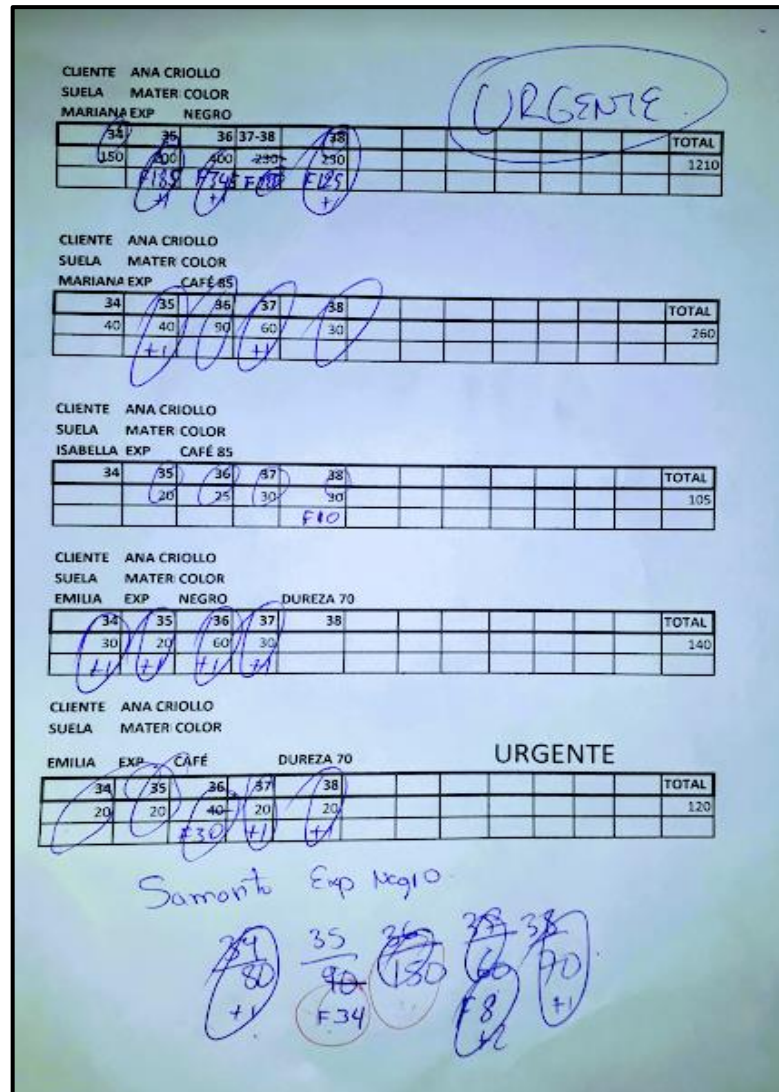 URGENTE
CLIENTE ANA CRIOLLO
SUELA MATER COLOR
MARIANA EXP NEGRO
34 35 36 37-38 38 TOTAL
150 200 400 230 230 1210
F185 F345 F125
+1 +1 +1
CLIENTE ANA CRIOLLO
SUELA MATER COLOR
MARIANA EXP CAFÉ 85
34 35 36 37 38 TOTAL
40 40 90 60 30 260
+1 +1
CLIENTE ANA CRIOLLO
SUELA MATER COLOR
ISABELLA EXP CAFÉ 85
34 35 36 37 38 TOTAL
20 25 30 30 105
F10
CLIENTE ANA CRIOLLO
SUELA MATER COLOR
EMILIA EXP NEGRO DUREZA 70
34 35 36 37 38 TOTAL
30 20 60 30 140
+1 +1 +1 +1
CLIENTE ANA CRIOLLO
SUELA MATER COLOR
EMILIA EXP CAFÉ DUREZA 70 URGENTE
34 35 36 37 38 TOTAL
20 20 40 20 20 120
F30 +1 +1
Exp Negro
34 35 36 37 38
80 90 150 60 90
+1 F.34 F8 +1
+2